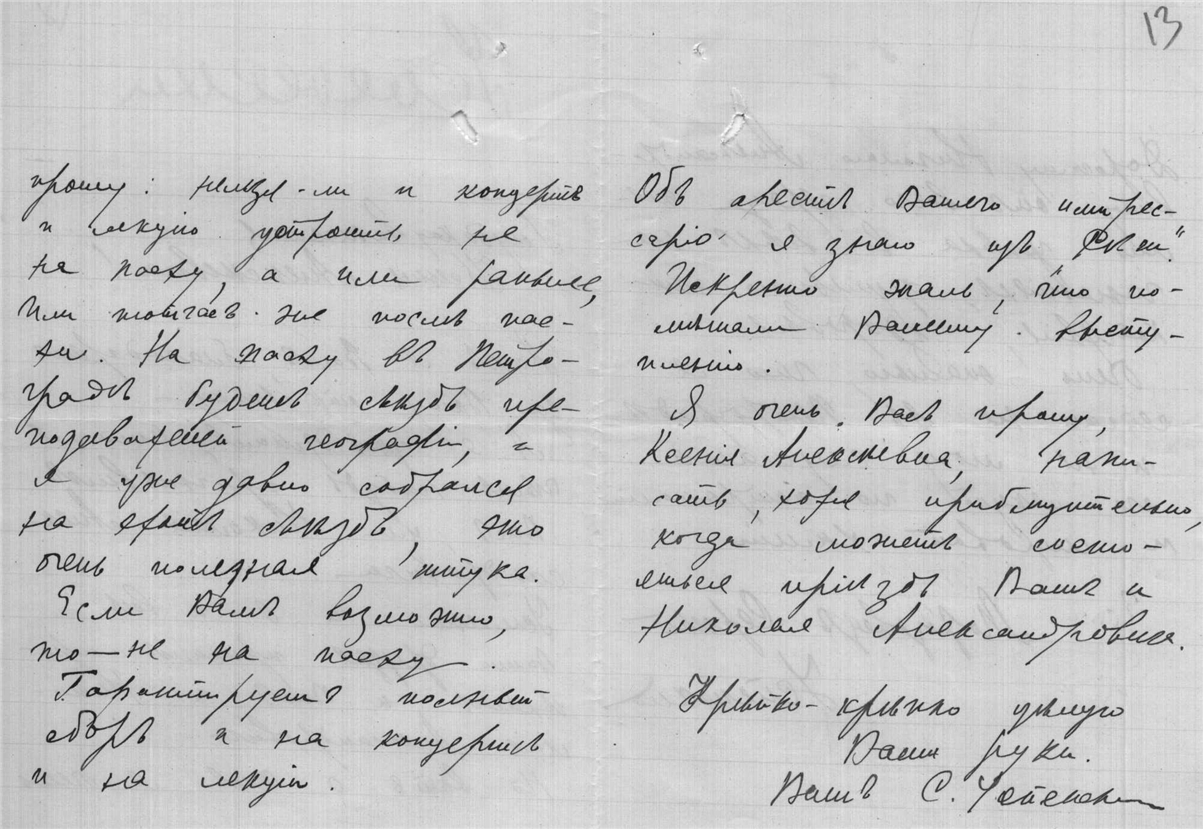 13
прошу: нельзя-ли и концертъ
и лекцію устроить не
на пасху, а или раньше,
или тотчасъ-же послѣ пас-
хи. На пасху въ Петро-
градѣ будетъ съѣздъ пре-
подавателей географіи, –
я уже давно собрался
на этотъ съѣздъ, это
очень полезная штука.
Если Вамъ возможно,
то — не на пасху
Гарантируемъ полный
сборъ и на концертъ
и на лекціи.
Объ арестѣ Вашего импрес-
саріо я знаю изъ
Искренно жаль, что по-
мѣшали Вашему высту-
пленію.
Я очень Васъ прошу,
Ксенія Алексѣевна, напи-
сать, хотя приблизительно,
когда можетъ состо-
яться пріѣздъ Вашъ и
Николая Александровича.
Крѣпко-крѣпко цѣлую
Ваши руки.
Вашъ С.